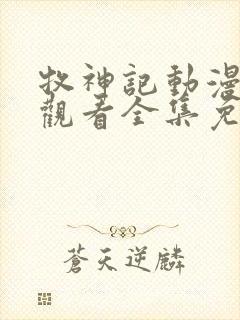 牧神記動漫
觀看全集免
蒼天逆麟